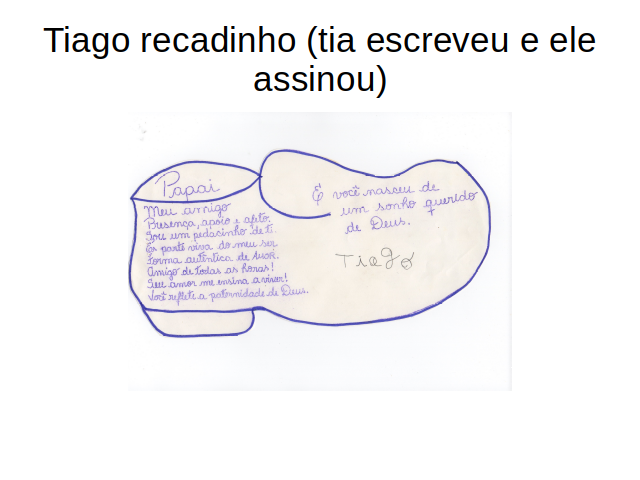 Tiago recadinho (tia escreveu e ele
assinou)
Papai
Meu amigo
Presença, apoio e afeto.
Sou um pedacinho de ti.
És parte viva do meu ser
Forma autêntica de
Amigo de todas as horas!
Seu amor me ensina a viver!
Você reflete a paternidade de Deus.
E você nasceu de
um sonho querido
de Deus.
Tiago